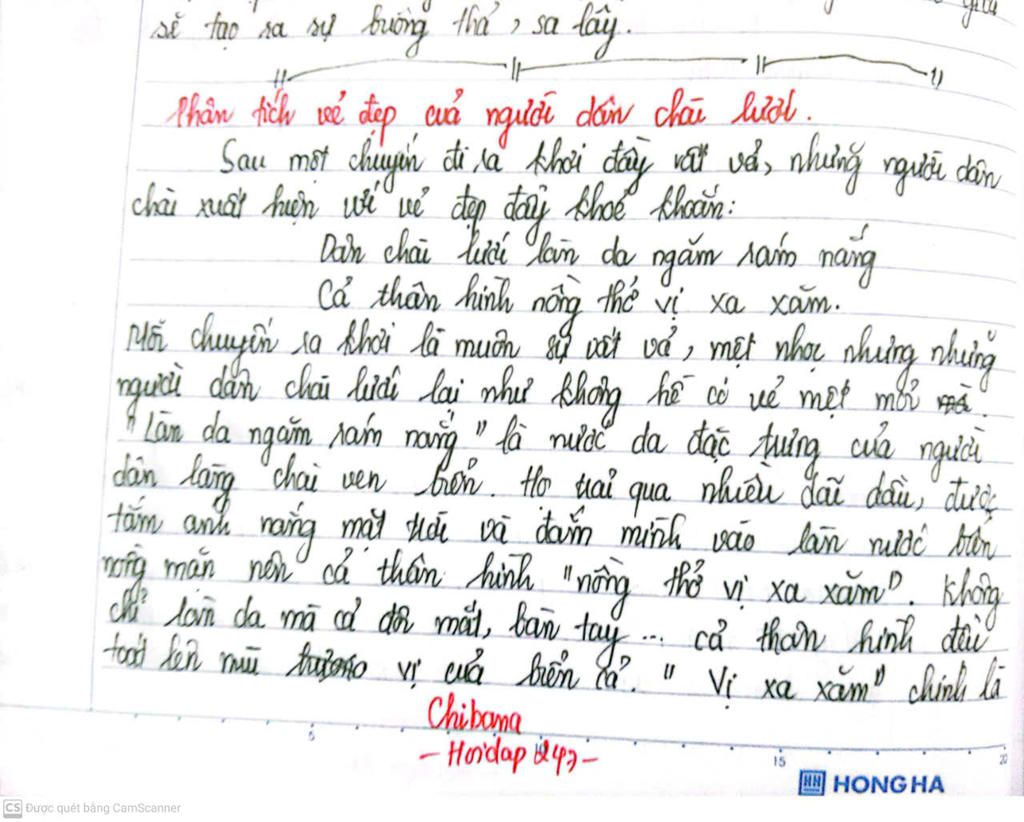 sẽ tạo ra sự buông thả, sa lầy.
Phân tích vẻ đẹp của người dân chài lưới.
Sau một chuyến đi ra khơi đầy vất vả, những người dân
chài xuất hiện với vẻ đẹp đầy khoẻ khoắn:
Dân chài lưới làn da ngăm rám nắng
Cả thân hình nồng thở vị xa xăm.
Mỗi chuyến ra khơi là muôn sự vất vả, mệt nhọc nhưng những
người dân chài lưới lại như không hề có vẻ mệt mỏi
"Làn da ngăm rám nắng" là nước da đặc trưng của người
dân làng chài ven biển. Họ trải qua nhiều dãi dầu, được
tắm ánh nắng mặt trời và đắm mình vào làn nước biển
nồng mặn nên cả thân hình "nồng thở vị xa xăm". Không
chỉ làn da mà cả đôi mắt, bàn tay... cả thân hình đều
toát lên mùi vị của biển cả. "Vị xa xăm" chính là
Chibana
- Hoidap 247 -
5 15 20
HH HONG HA
CS Được quét bằng CamScanner